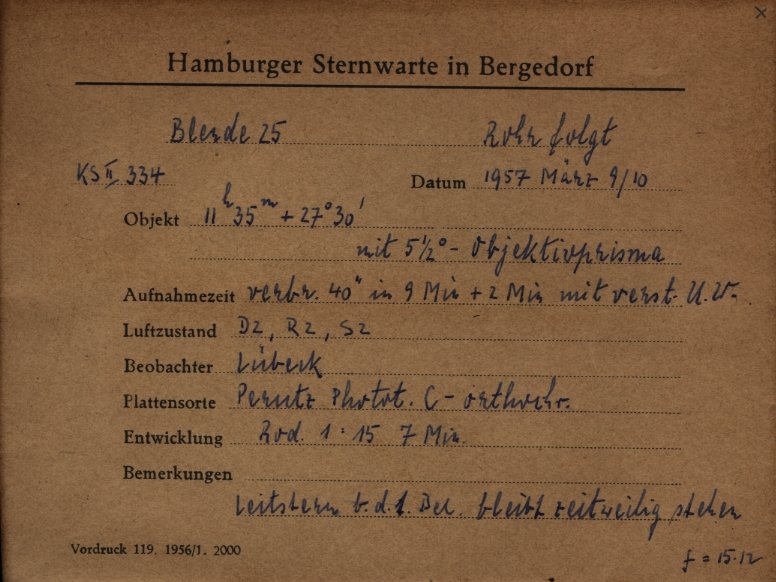 Hamburger Sternwarte in Bergedorf
Blende 25 Rohr folgt
KS II 334 Datum 1957 März 9/10
Objekt 11h 35m + 27° 30'
mit 5½° - Objektivprisma
Aufnahmezeit verbr. 40" in 9 Min + 2 Min mit verst. U.W.
Luftzustand D2, R2, S2
Beobachter Lübeck
Plattensorte Perutz Photot. C - orthochr.
Entwicklung Rod. 1 : 15 7 Min.
Bemerkungen
Leitstern b. d. 1. Bel. bleibt zeitweilig stehen
Vordruck 119. 1956/1. 2000
f = 15.12